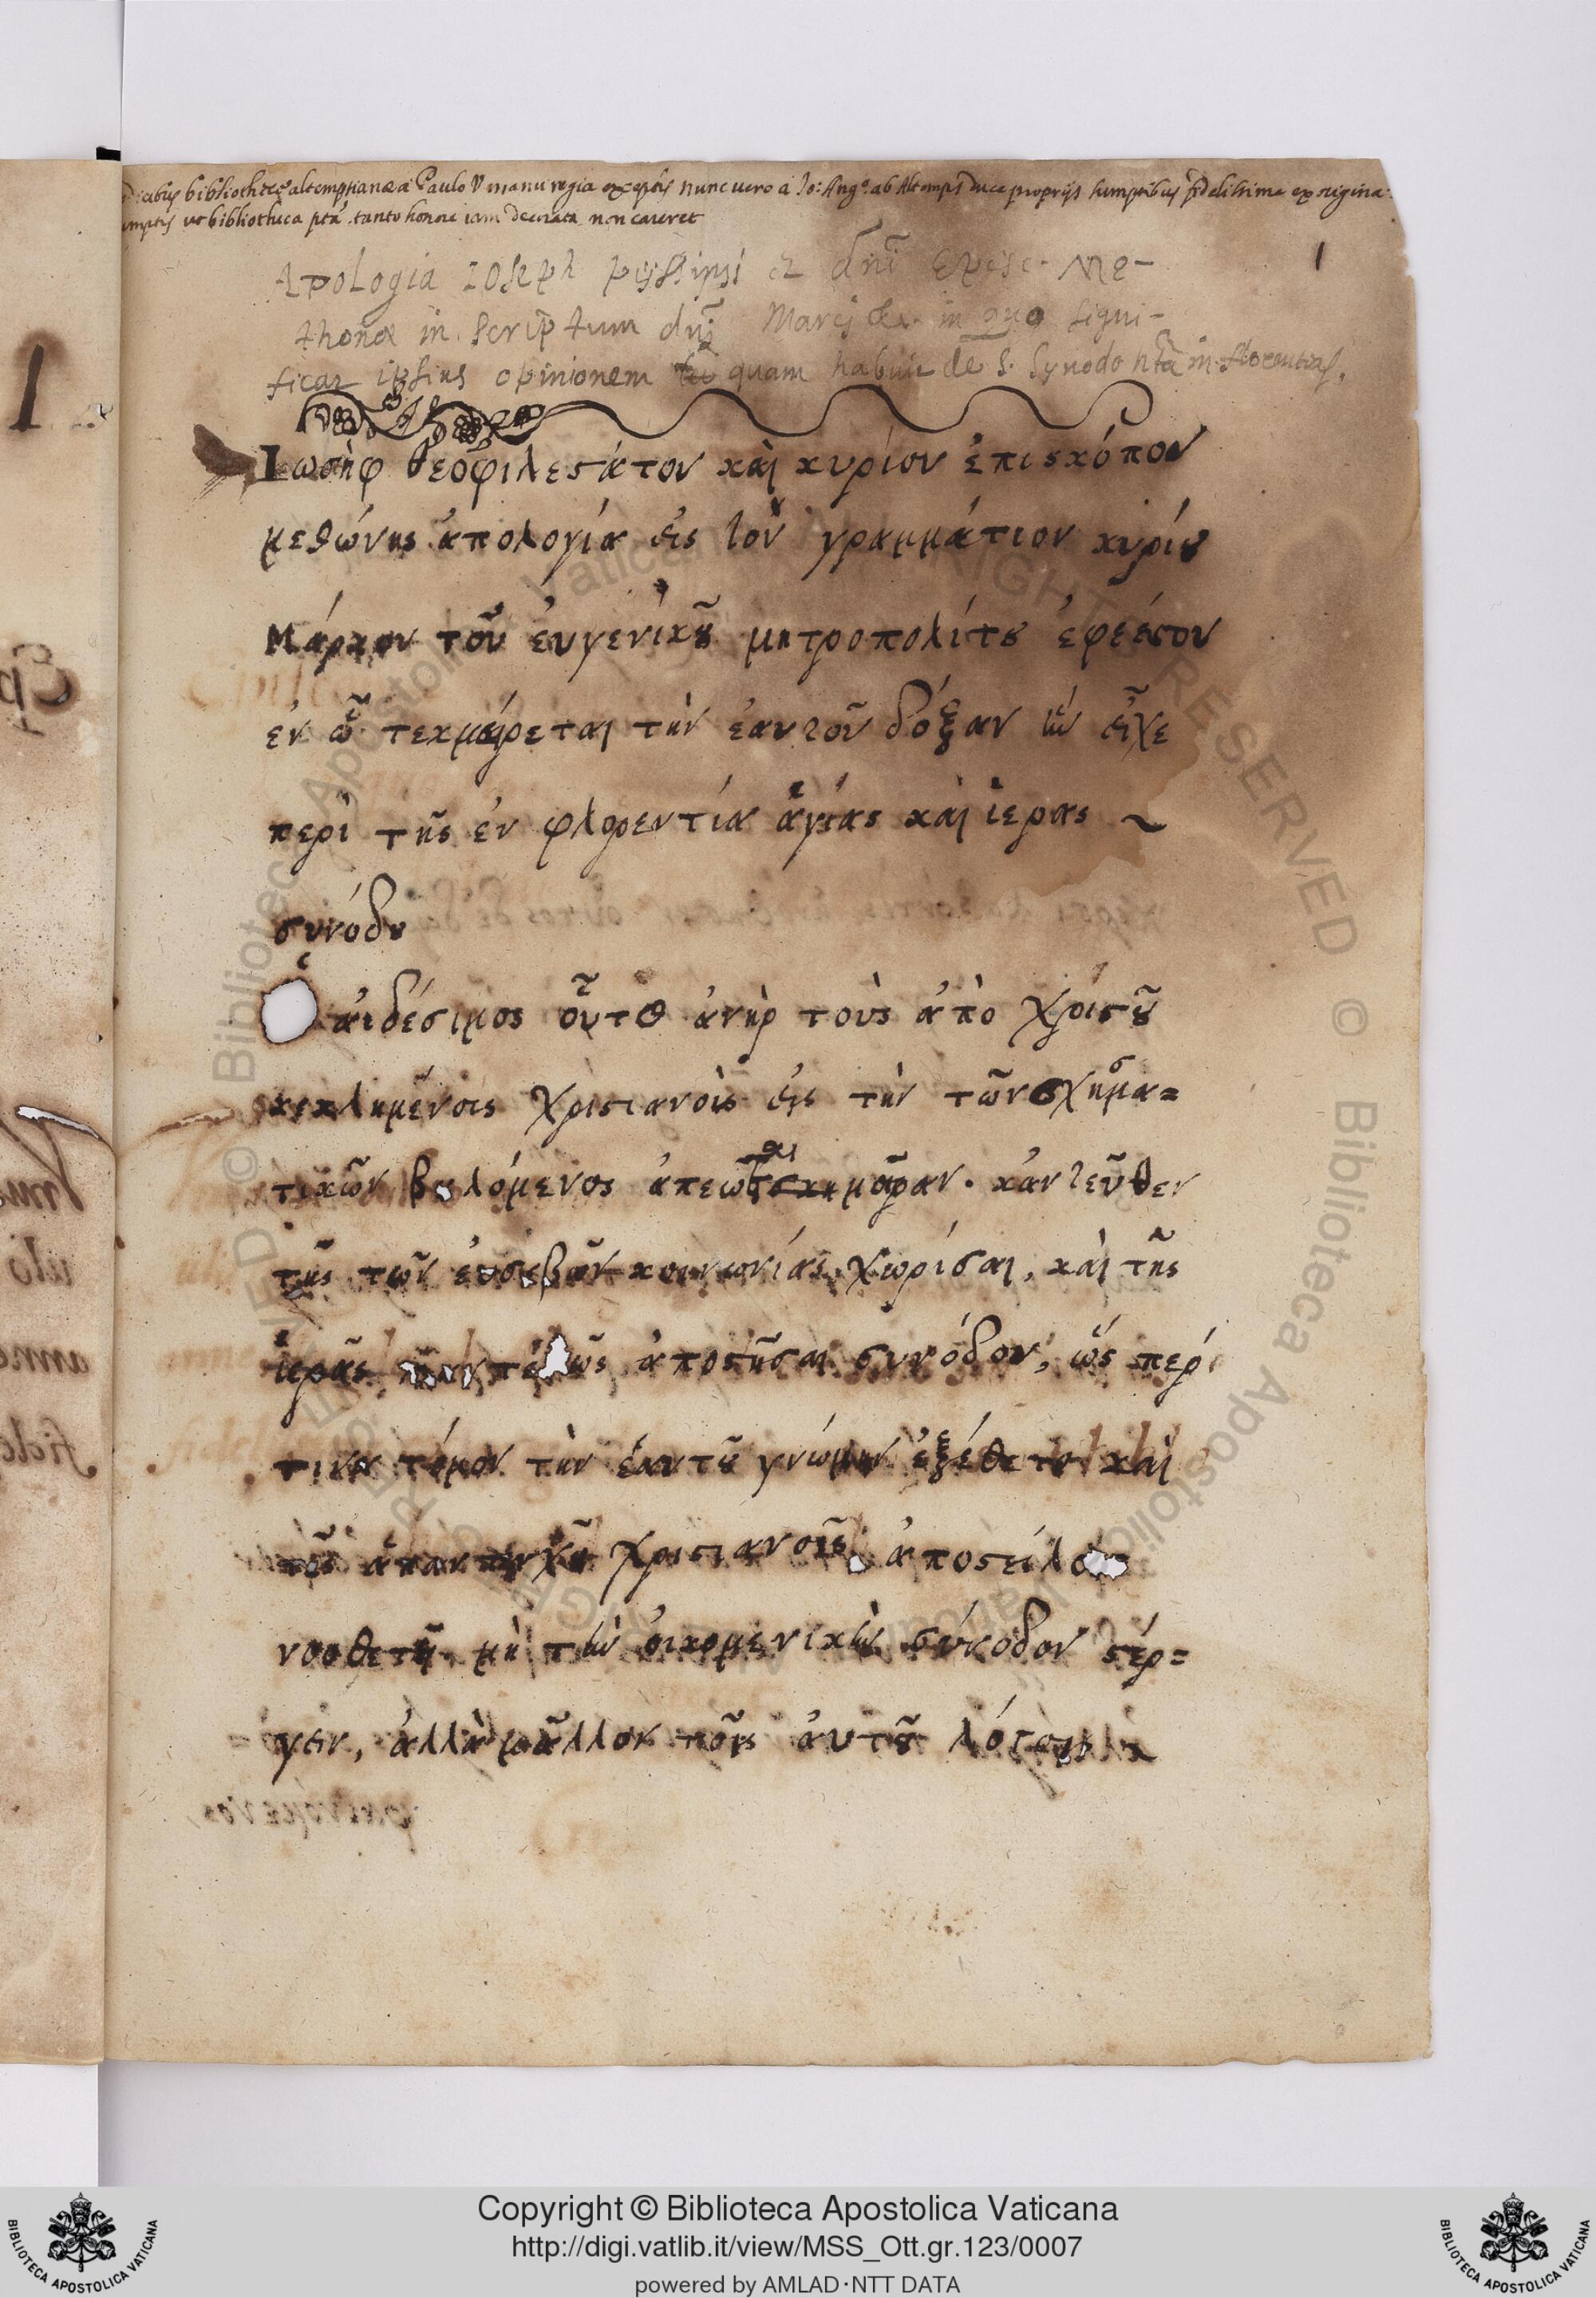 bibliothecę altemptianæ a Paulo V manu regia exceptis nunc vero a Io: Angº. ab Altemps Duce proprijs sumptibus fidelissime ex origina:
umptis ut bibliotheca ptã. tanto honore iam decorata non careret
1
Apologia Ioseph pijssimi et dñi Episc. Me-
thonæ in scriptum dñi Marci in quo signi-
ficat ipsius opinionem quam habuit de S. Synodo in florentia.
Ἰωσὴφ θεοφιλεστάτου καὶ κυρίου ἐπισκόπου
μεθώνης ἀπολογία εἰς τὸν γραμμάτιον κυρίȣ
Μάρκου τοῦ ἐυγενικȣ͂ μητροπολίτȣ ἐφέσου
ἐν ῷ τεκμαίρεται τὴν ἑαυτοῦ δόξαν ἣν εἶχε
περὶ τῆς ἐν φλορεντία ἁγίας καὶ ἱερας ~
συνόδυ
Ὁ ἀιδέσιμος οὗτος ἀνὴρ τοὺς ἀπὸ Χριστȣ͂
κεκλημένοις Χριστιανοὶς εἰς τὴν τῶν σχημα=
τικῶν βαλόμενος ἀπεῶσαι μοῖραν. κἀντεῦθεν
τῆς τῶν ἐυσεβῶν κοινωνίας χωρίσαι, καὶ τῆς
ἱερᾶς ἀποστῆσαι συνόδου, ὥς περί
τινα τόμον τὴν ἑαυτȣ͂ γνώμην ἐξέθετο καὶ
τοῖς Χριστιανοῖς ἀποστείλας
νουθετεῖ μὴ τὴν ὀικομενικὴν σύνοδον στέρ=
γειν, ἀλλὰ μᾶλλον τοῖς ἀυτȣ͂ λόγοις
Copyright © Biblioteca Apostolica Vaticana
http://digi.vatlib.it/view/MSS_Ott.gr.123/0007
powered by AMLAD·NTT DATA
BIBLIOTECA APOSTOLICA VATICANA
BIBLIOTECA APOSTOLICA VATICANA